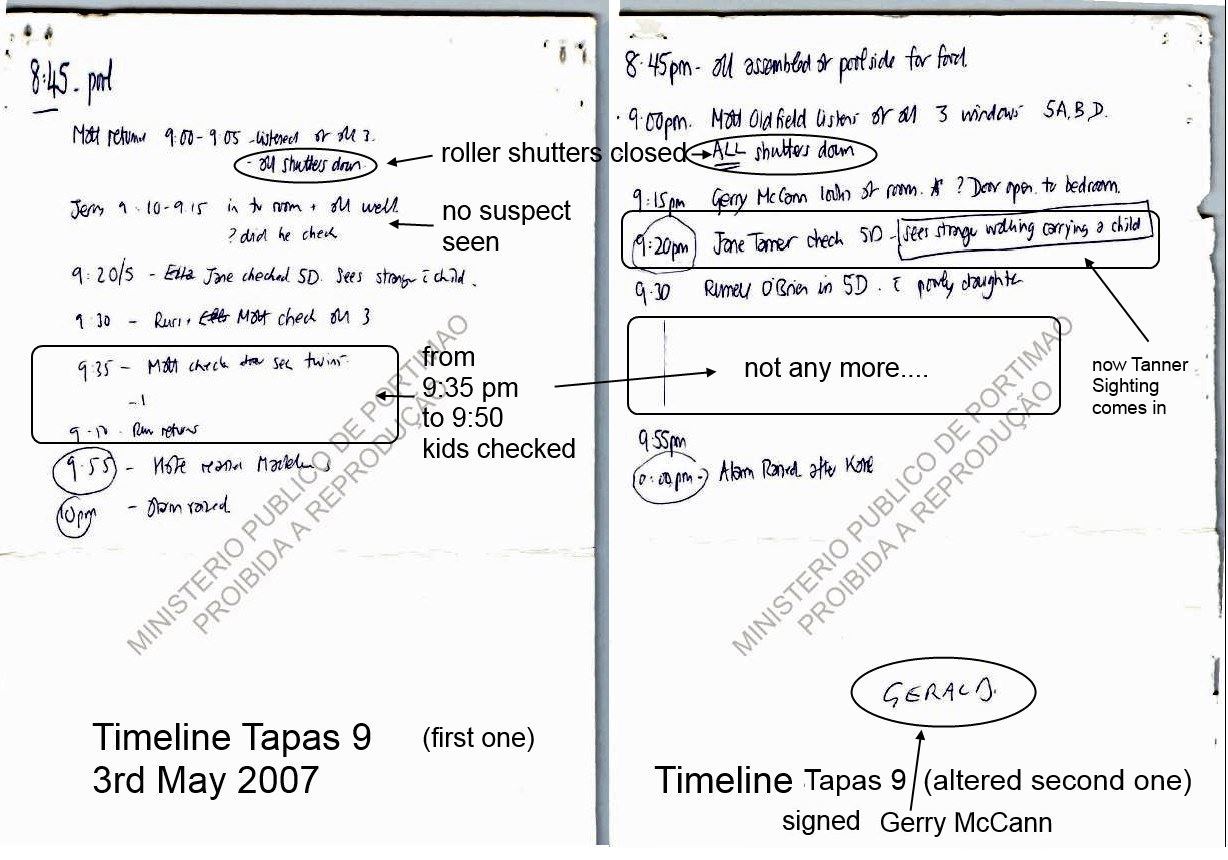 8:45 - pool
Matt returns 9.00 - 9.05 - listened at all 3.
- all shutters down
Jerry 9.10-9.15 in the room + all well
? did he check
9.20/5 - Ella Jane checked 5D. Sees stranger c̄ child.
9.30 - Russ, Ella Matt check all 3
9:35 - Matt check see twins
9-50 - Russ returns
9.55 - Kate
10pm - Alarm raised
roller shutters closed
no suspect
seen
from
9:35 pm
to 9:50
kids checked
MINISTERIO PUBLICO DE PORTIMAO
PROIBIDA A REPRODUÇÃO
Timeline Tapas 9 (first one)
3rd May 2007
8.45pm - All assembled at poolside for food
9.00pm. Matt Oldfield listens at all 3 windows 5A,B,D.
ALL shutters down
9:15pm Gerry McCann looks at room ? Door open to bedroom.
9:20pm Jane Tanner check 5D - Sees stranger walking carrying a child
9.30 Russell O'Brien in 5D. c̄ poorly daughter
not any more....
now Tanner
Sighting
comes in
9.55pm
10:00pm - Alarm Raised after Kate
MINISTERIO PUBLICO DE PORTIMAO
PROIBIDA A REPRODUÇÃO
GERALD.
Timeline Tapas 9 (altered second one)
signed Gerry McCann